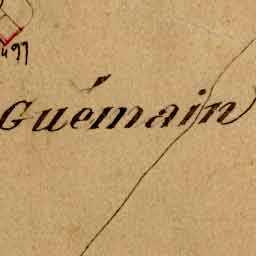 497
Guémain